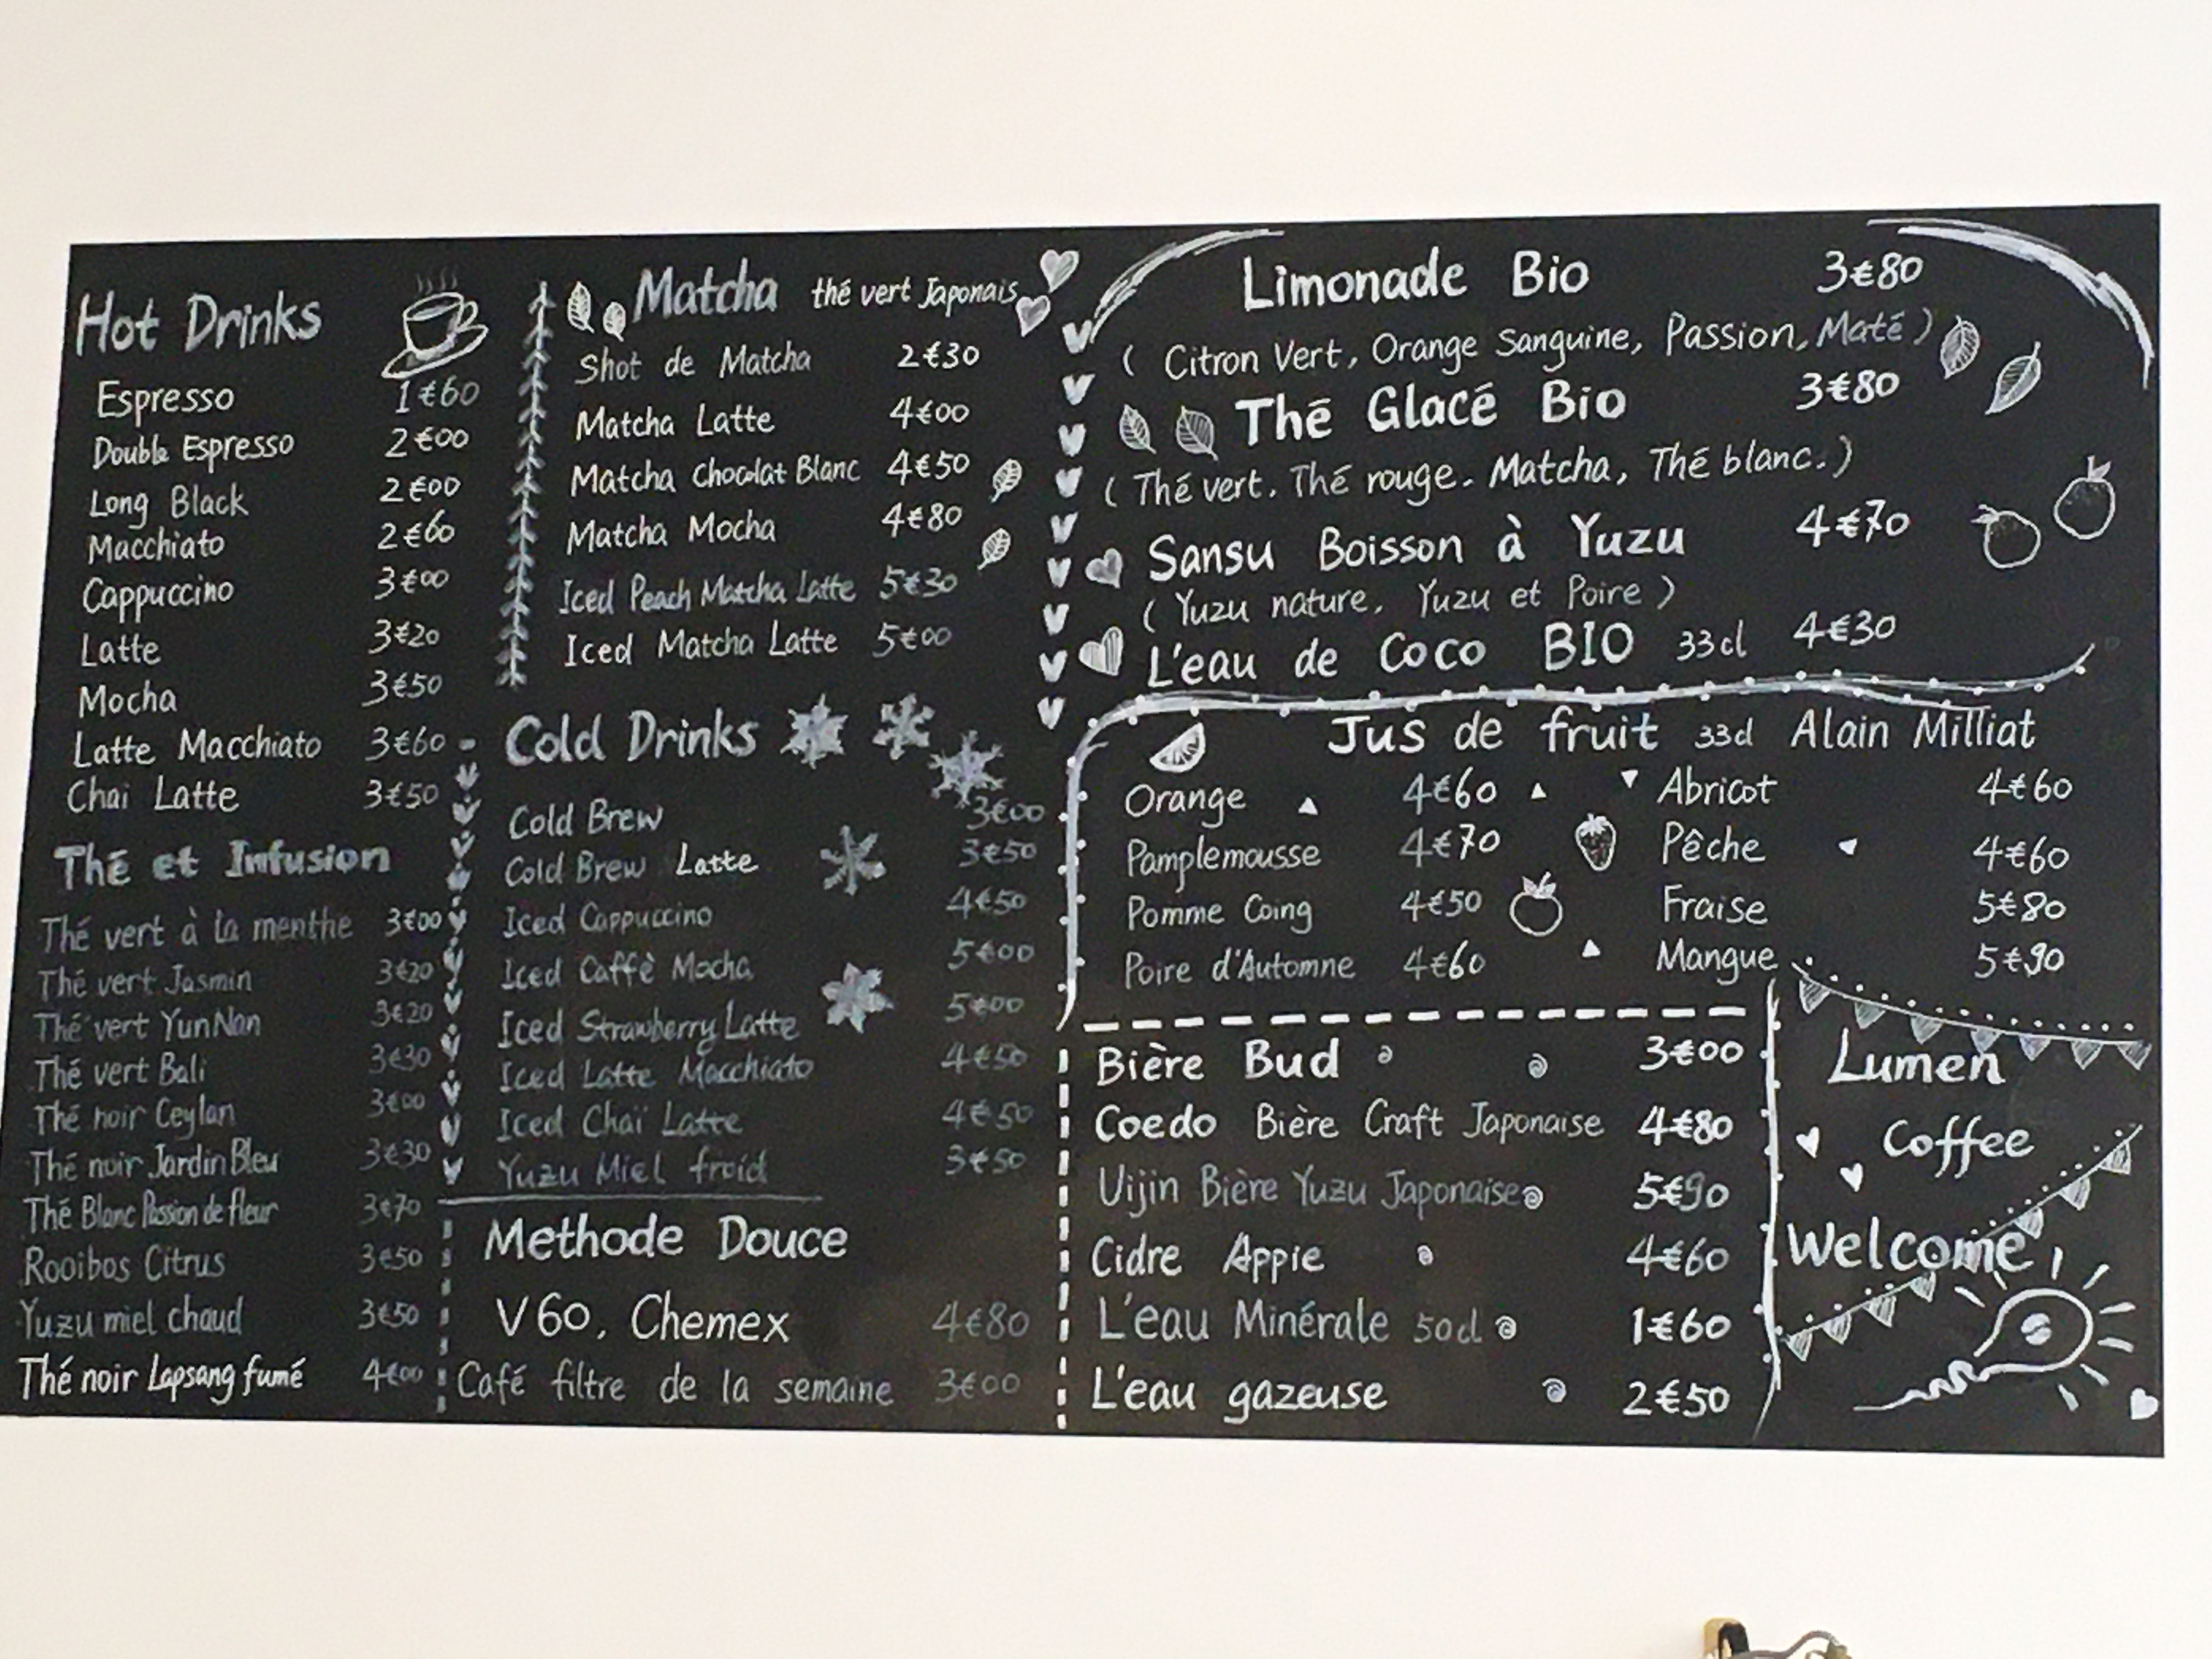 Hot Drinks
Espresso 1€60
Double Espresso 2€00
Long Black 2€00
Macchiato 2€60
Cappuccino 3€00
Latte 3€20
Mocha 3€50
Latte Macchiato 3€60
Chai Latte 3€50
Thé et Infusion
Thé vert à la menthe 3€00
Thé vert Jasmin 3€20
Thé vert YunNan 3€20
Thé vert Bali 3€30
Thé noir Ceylan 3€00
Thé noir Jardin Bleu 3€30
Thé Blanc Passion de fleur 3€70
Rooibos Citrus 3€50
Yuzu miel chaud 3€50
Thé noir Lapsang fumé 4€00
Matcha thé vert Japonais
Shot de Matcha 2€30
Matcha Latte 4€00
Matcha Chocolat Blanc 4€50
Matcha Mocha 4€80
Iced Peach Matcha Latte 5€30
Iced Matcha Latte 5€00
Cold Drinks
Cold Brew 3€00
Cold Brew Latte 3€50
Iced Cappuccino 4€50
Iced Caffè Mocha 5€00
Iced Strawberry Latte 5€00
Iced Latte Macchiato 4€50
Iced Chaï Latte 4€50
Yuzu Miel froid 3€50
Methode Douce
V60, Chemex 4€80
Café filtre de la semaine 3€00
Limonade Bio 3€80
( Citron Vert, Orange Sanguine, Passion, Maté )
Thé Glacé Bio 3€80
( Thé vert, Thé rouge, Matcha, Thé blanc. )
Sansu Boisson à Yuzu 4€70
( Yuzu nature, Yuzu et Poire )
L'eau de Coco BIO 33cl 4€30
Jus de fruit 33cl Alain Milliat
Orange 4€60 Abricot 4€60
Pamplemousse 4€70 Pêche 4€60
Pomme Coing 4€50 Fraise 5€80
Poire d'Automne 4€60 Mangue 5€90
Bière Bud 3€00
Coedo Bière Craft Japonaise 4€80
Uijin Bière Yuzu Japonaise 5€90
Cidre Appie 4€60
L'eau Minérale 50cl 1€60
L'eau gazeuse 2€50
Lumen
Coffee
Welcome